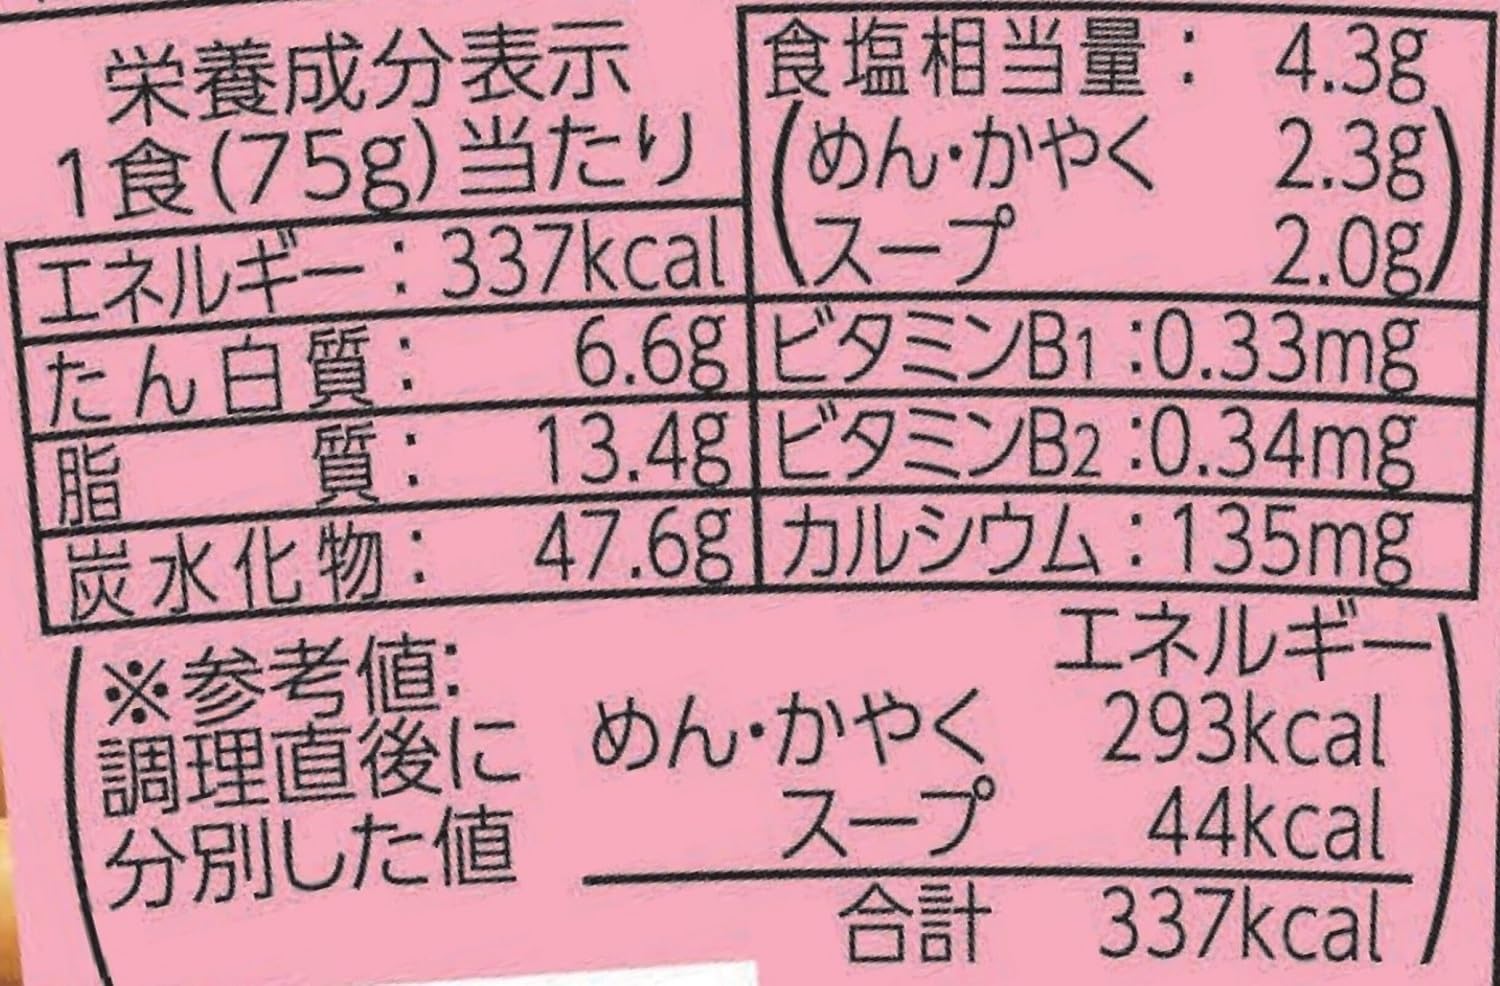 栄養成分表示
1食(75g)当たり
エネルギー:337kcal
たん白質: 6.6g
脂質: 13.4g
炭水化物: 47.6g
食塩相当量: 4.3g
(めん・かやく 2.3g
スープ 2.0g)
ビタミンB1:0.33mg
ビタミンB2:0.34mg
カルシウム:135mg
(※参考値:
調理直後に
分別した値
エネルギー
めん・かやく 293kcal
スープ 44kcal
合計 337kcal)